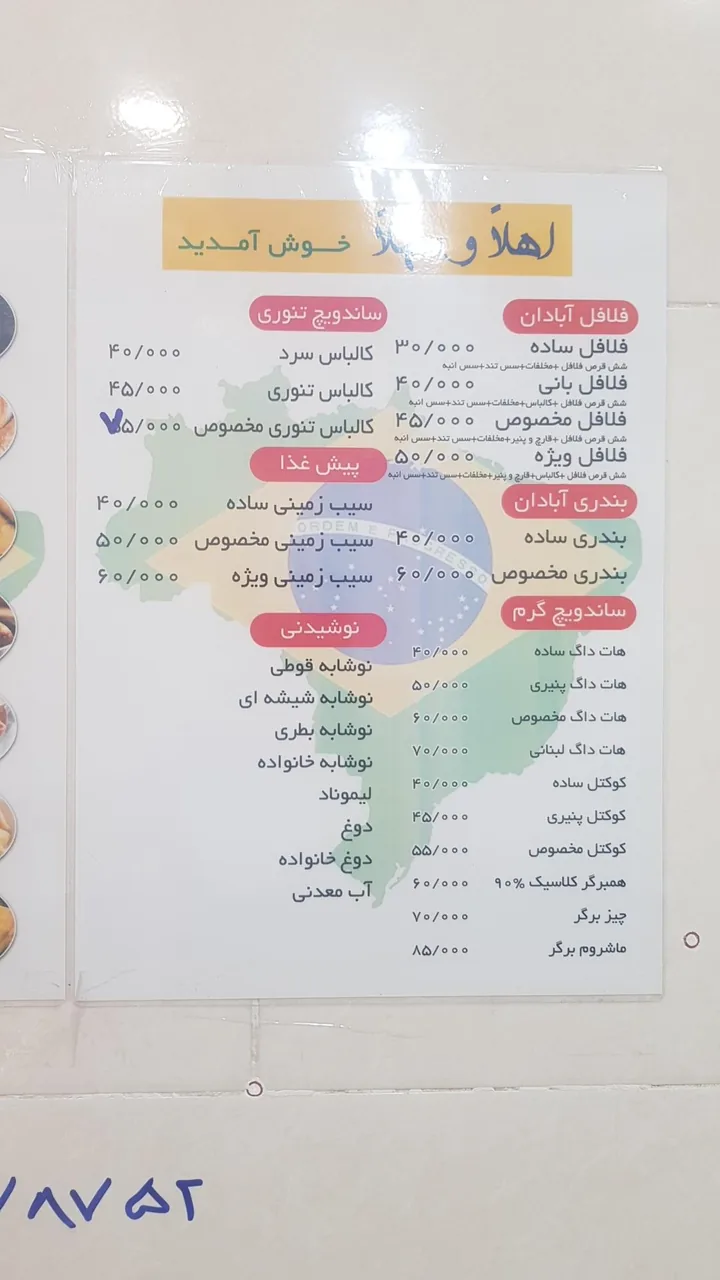 اهلاً و
خوش آمدید
فلافل آبادان
فلافل ساده ۳۰/۰۰۰
شش قرص فلافل +مخلفات+سس تند+سس انبه
فلافل بانی ۴۰/۰۰۰
شش قرص فلافل +کالباس+مخلفات+سس تند+سس انبه
فلافل مخصوص ۴۵/۰۰۰
شش قرص فلافل +قارچ و پنیر+مخلفات+سس تند+سس انبه
فلافل ویژه ۵۰/۰۰۰
شش قرص فلافل +کالباس+قارچ و پنیر+مخلفات+سس تند+سس انبه
بندری آبادان
بندری ساده ۴۰/۰۰۰
بندری مخصوص ۶۰/۰۰۰
ساندویچ گرم
هات داگ ساده ۴۰/۰۰۰
هات داگ پنیری ۵۰/۰۰۰
هات داگ مخصوص ۶۰/۰۰۰
هات داگ لبنانی ۷۰/۰۰۰
کوکتل ساده ۴۰/۰۰۰
کوکتل پنیری ۴۵/۰۰۰
کوکتل مخصوص ۵۵/۰۰۰
همبرگر کلاسیک ۹۰% ۶۰/۰۰۰
چیز برگر ۷۰/۰۰۰
ماشروم برگر ۸۵/۰۰۰
ساندویچ تنوری
کالباس سرد ۴۰/۰۰۰
کالباس تنوری ۴۵/۰۰۰
کالباس تنوری مخصوص ۷۵/۰۰۰
پیش غذا
سیب زمینی ساده ۴۰/۰۰۰
سیب زمینی مخصوص ۵۰/۰۰۰
سیب زمینی ویژه ۶۰/۰۰۰
نوشیدنی
نوشابه قوطی
نوشابه شیشه ای
نوشابه بطری
نوشابه خانواده
لیموناد
دوغ
دوغ خانواده
آب معدنی
ORDEM E PROGRESSO
۸۷۵۲